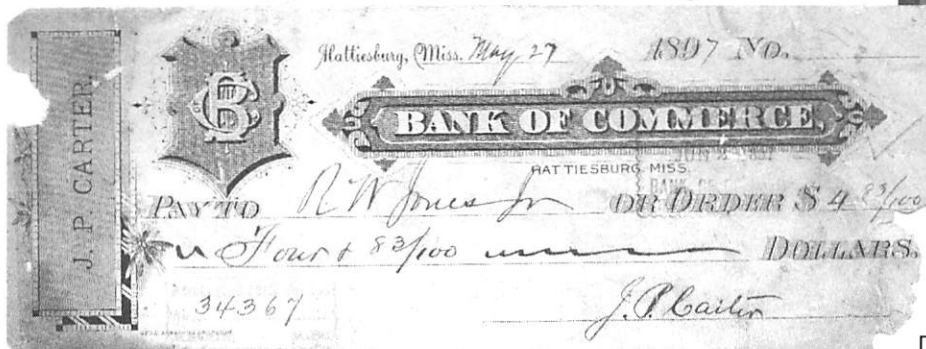 J. P. CARTER.
CB
Hattiesburg, Miss. May 27 1897 No.
BANK OF COMMERCE,
HATTIESBURG, MISS.
PAY TO R W Jones Jr OR ORDER $ 4 83/100
Four & 83/100 DOLLARS.
34367
J. P. Carter